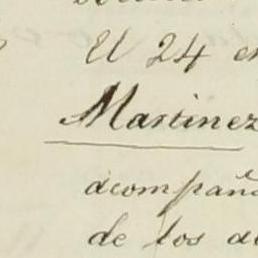 El 24
Martinez
acompaña
de los